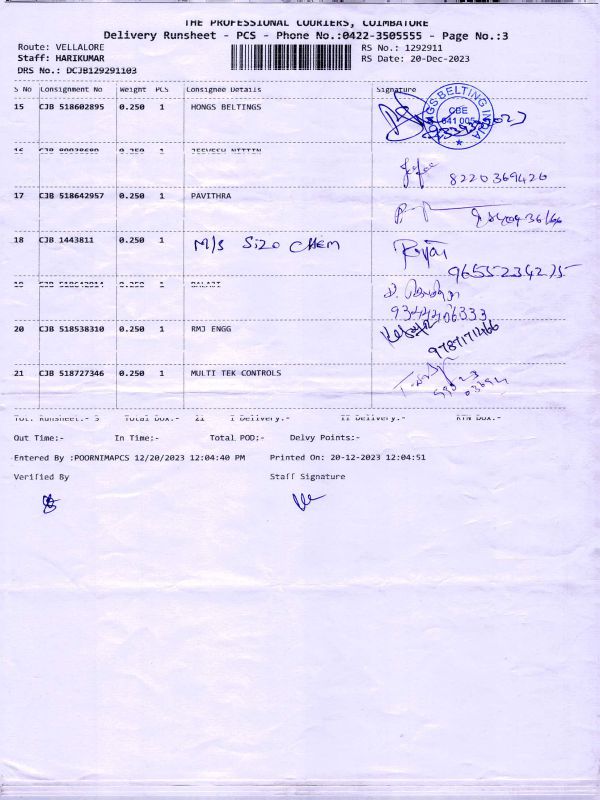 THE PROFESSIONAL COURIERS, COIMBATORE
Delivery Runsheet - PCS - Phone No.:0422-3505555 - Page No.:3
Route: VELLALORE
RS No.: 1292911
Staff: HARIKUMAR
RS Date: 20-Dec-2023
DRS No.: DCJB129291103
S No Consignment No Weight PCS Consignee Details Signature
15 CJB 518602895 0.250 1 HONGS BELTINGS
HONGS BELTING INDIA
CBE
641 005
16 0.250 1 JEEVESH NITTIN
8220369426
17 CJB 518642957 0.250 1 PAVITHRA
18 CJB 1443811 0.250 1 M/S Sizo Chem
9655234275
19 0.250 1 BALAJI
9344406333
20 CJB 518538310 0.250 1 RMJ ENGG
9787171466
21 CJB 518727346 0.250 1 MULTI TEK CONTROLS
Tot. Runsheet:- 5 Total Dox:- 21 I Delivery:- II Delivery:- RTN Dox:-
Out Time:- In Time:- Total POD:- Delvy Points:-
Entered By :POORNIMAPCS 12/20/2023 12:04:40 PM Printed On: 20-12-2023 12:04:51
Verified By Staff Signature